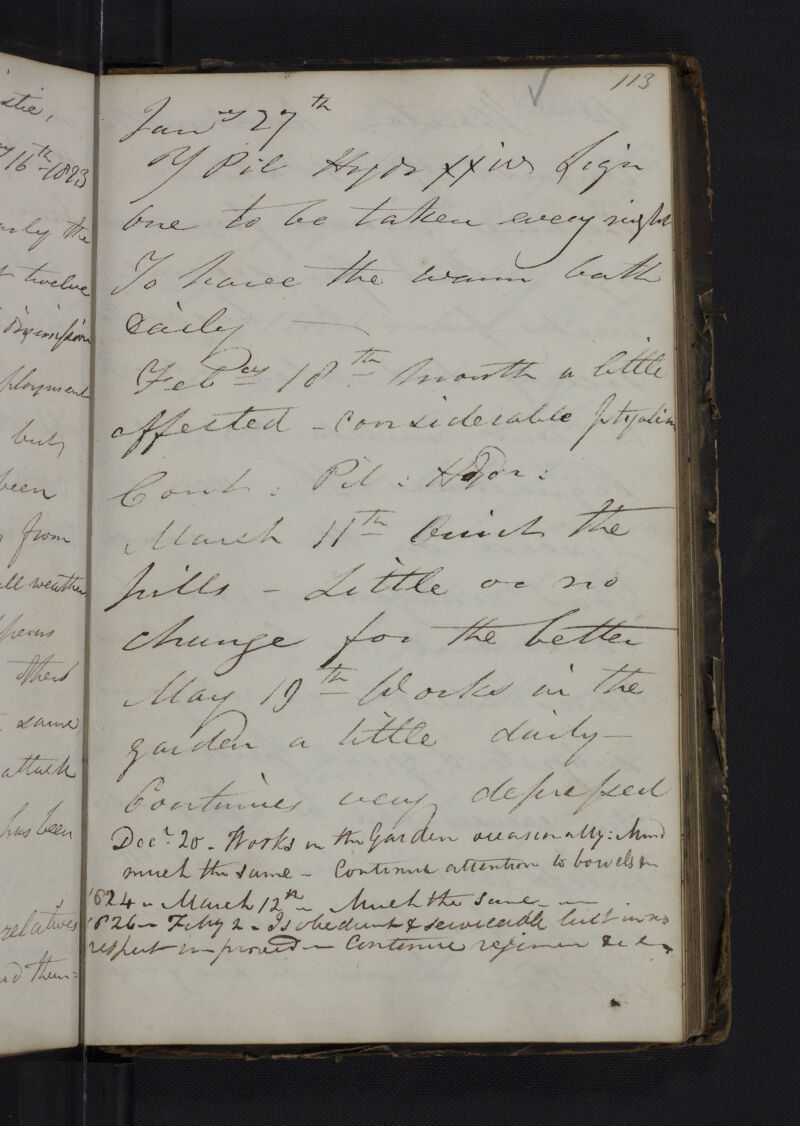 stie,
16th 1823
the
twelve
ployment
but
been
from
weather
same
attack
has been
relatives
113
Jany 27th
Pil Hydr xxiv Sign
one to be taken every night
To have the warm bath
daily —
Febry 18th Mouth a little
affected – considerable ptyalism
Cont : Pil : Hydr :
March 11th Omit the
pills – Little or no
change for the better
May 19th Works in the
garden a little daily –
Continues very depressed
Decr. 20 – Works in the Garden occasionally: Mind
much the same – Continue attention to bowels
1824 – March 12th – Much the same –
1826 – Feby 2 – Is obedient & serviceable but in no
respect improved – Continue regimen &c &c